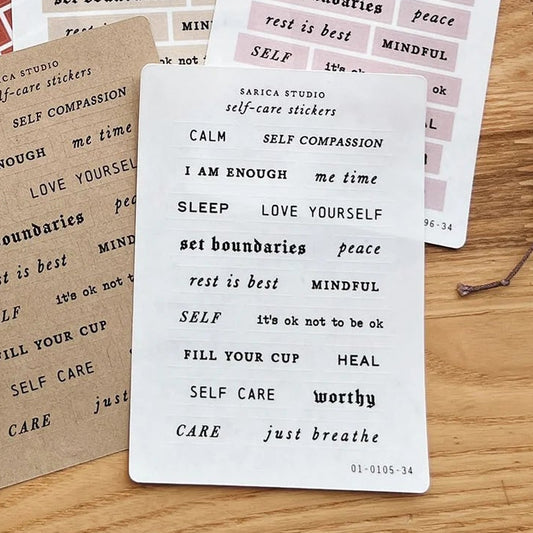 set boundaries
rest is best
boundaries
peace
rest is best
MINDFUL
SELF
it's ok
ok
ok not to
SARICA STUDIO
self-care stickers
SELF COMPASSION
ENOUGH
me time
LOVE YOURSELF
boundaries
rest is best
MIND
SELF
it's ok not to
FILL YOUR CUP
SELF CARE
CARE
just
SARICA STUDIO
self-care stickers
CALM
SELF COMPASSION
I AM ENOUGH
me time
SLEEP
LOVE YOURSELF
set boundaries
peace
rest is best
MINDFUL
SELF
it's ok not to be ok
FILL YOUR CUP
HEAL
SELF CARE
worthy
CARE
just breathe
01-0105-34
96-34